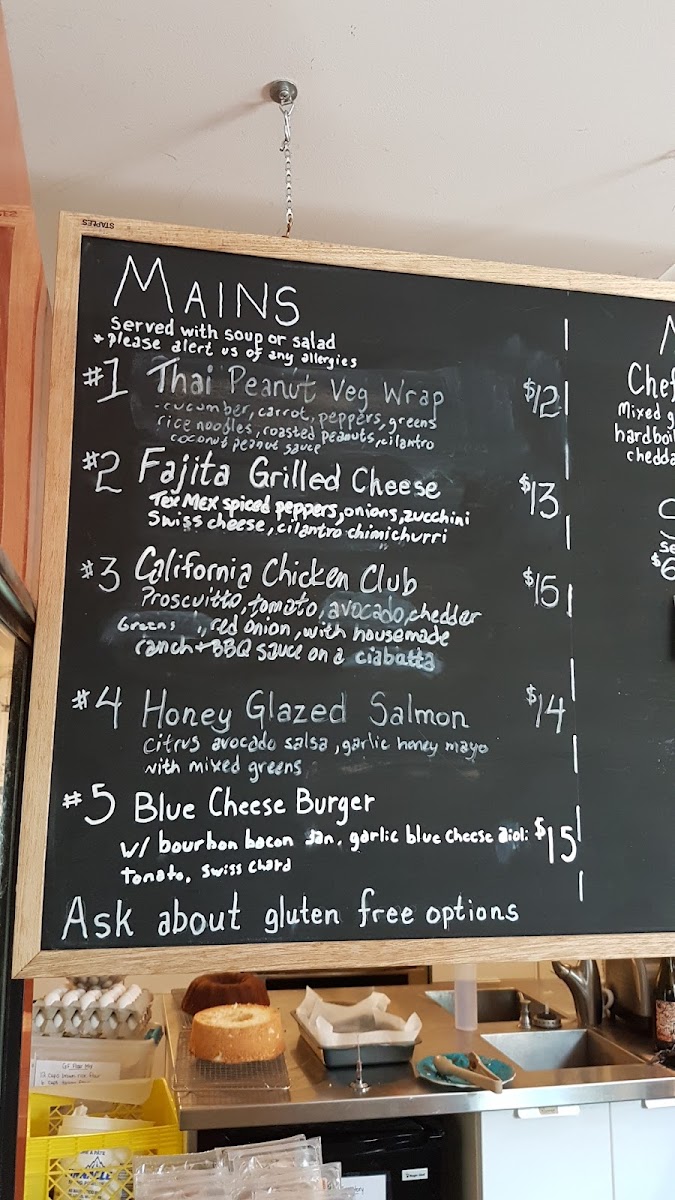 STAPLES
MAINS
served with soup or salad
*please alert us of any allergies
#1 Thai Peanut Veg Wrap $12
-cucumber, carrot, peppers, greens
rice noodles, roasted peanuts, cilantro
coconut peanut sauce
#2 Fajita Grilled Cheese $13
Tex Mex spiced peppers, onions, zucchini
Swiss cheese, cilantro chimichurri
#3 California Chicken Club $15
Proscuitto, tomato, avocado, chedder
Greens, red onion, with housemade
ranch + BBQ sauce on a ciabatta
#4 Honey Glazed Salmon $14
citrus avocado salsa, garlic honey mayo
with mixed greens
#5 Blue Cheese Burger $15
w/ bourbon bacon Jan. garlic blue cheese aioli
Tomato, Swiss chard
Ask about gluten free options
Chef
Mixed g
hardboil
chedda
se
$6